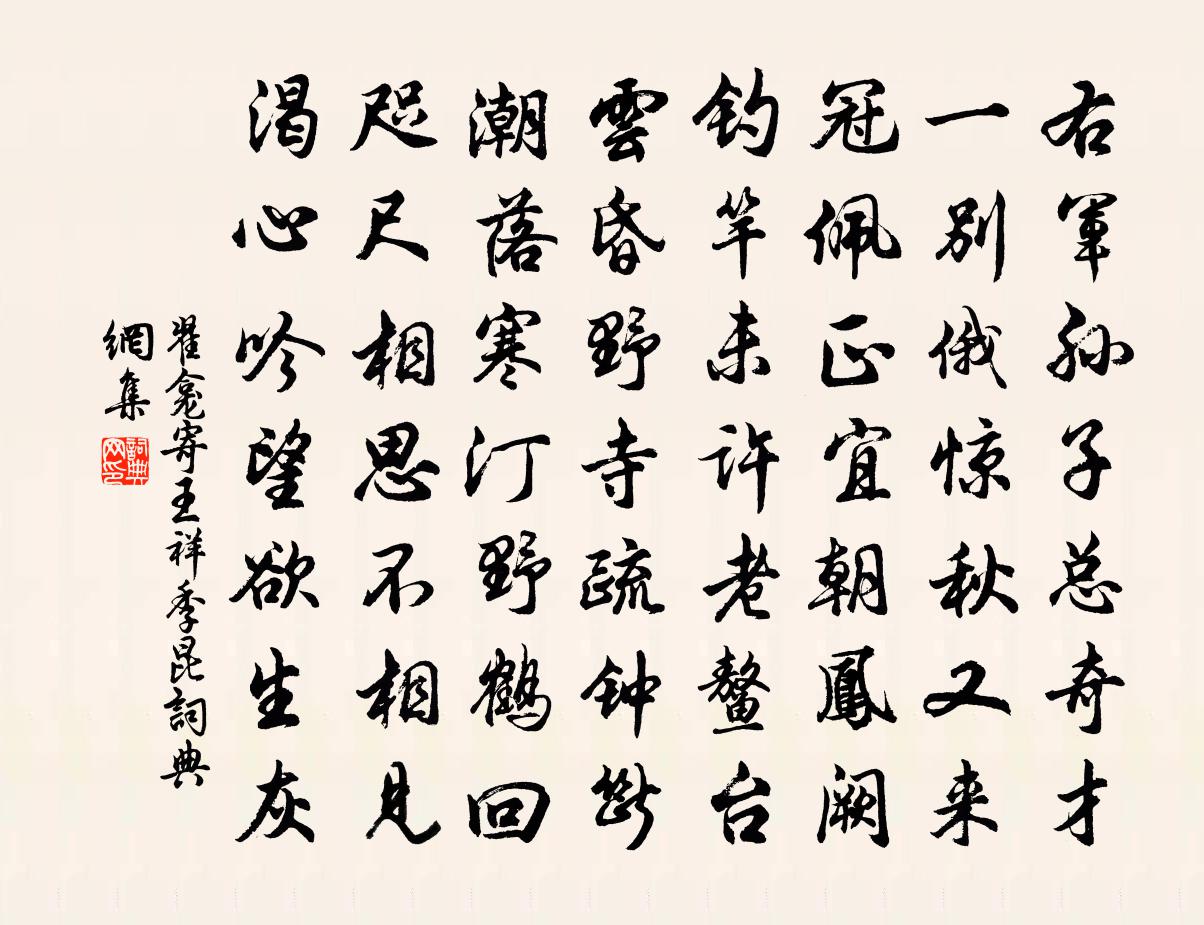 右軍孙子总奇才
一别俄惊秋又来
冠佩正宜朝鳳阙
钓竿未许老鳌台
雲昏野寺疏钟断
潮落寒汀野鶴回
咫尺相思不相見
渴心吟望欲生灰
翟龛寄王祥季昆詞典
網集
詞典